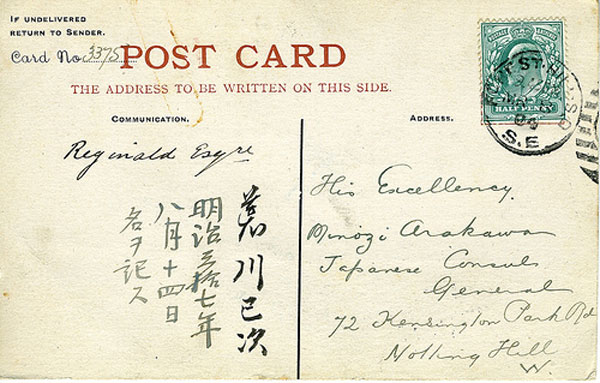 IF UNDELIVERED
RETURN TO SENDER.
Card No 3375
POST CARD
THE ADDRESS TO BE WRITTEN ON THIS SIDE.
HALF PENNY
S.E
COMMUNICATION.
ADDRESS.
Reginald Esqre
荒川已次
明治三拾七年
八月十四日
名ヲ記ス
His Excellency
Minozi Arakawa
Japanese Consul
General
72 Kensington Park Rd
Notting Hill
W.